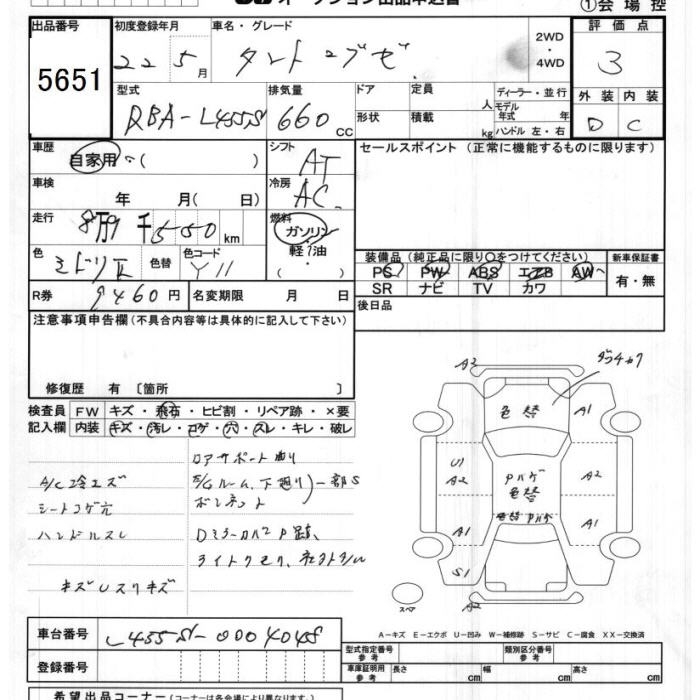 ①会 場 控
出品番号
5651
初度登録年月
22 5月
車名・グレード
タント エグゼ
2WD
・
4WD
評 価 点
3
外 装 内 装
D C
型式
DBA-L455S
排気量
660 CC
ドア
形状
定員
人
積載
kg
ディーラー・並行
モデル
年式 年
ハンドル 左・右
車歴
自家用・( )
シフト
AT
セールスポイント (正常に機能するものに限ります)
車検
年 月( 日)
冷房
AC
走行
km
燃料
ガソリン
軽油
色
色替
色コード
R券
9460円
名変期限 月 日
装備品 (純正品に限り○をつけてください)
PS PW ABS エアB AW
SR ナビ TV カワ
新車保証書
有・無
後日品
注意事項申告欄 (不具合内容等は具体的に記入して下さい)
修復歴 有 〔箇所 〕
検査員
記入欄
FW キズ・飛石・ヒビ割・リペア跡・×要
内装 キズ・汚レ・コゲ・穴・スレ・キレ・破レ
A/C冷エズ
シートコゲ穴
ハンドルスレ
キズUスリキズ
A2
A1
色替
U1
A2
Pハゲ
色替
A2
色替 Pハゲ
A1
A1
S1
A2
スペア
A-キズ E-エクボ U-凹み W-補修跡 S-サビ C-腐食 XX-交換済
車台番号
L455S-0004045
登録番号
型式指定番号
参 考
類別区分番号
参 考
車庫証明用
参 考
長さ cm 幅 cm 高さ cm
希望出品コーナー (コーナーは各会場により異なります)